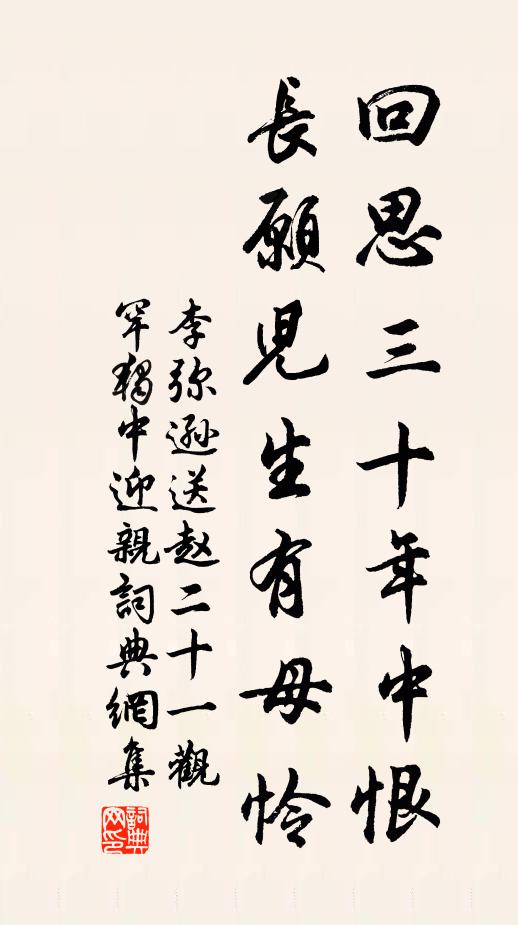 回思三十年中恨
長願兒生有母怜
李弥遜送赵二十一觀
罕獨中迎親詞典網集
詞典网印